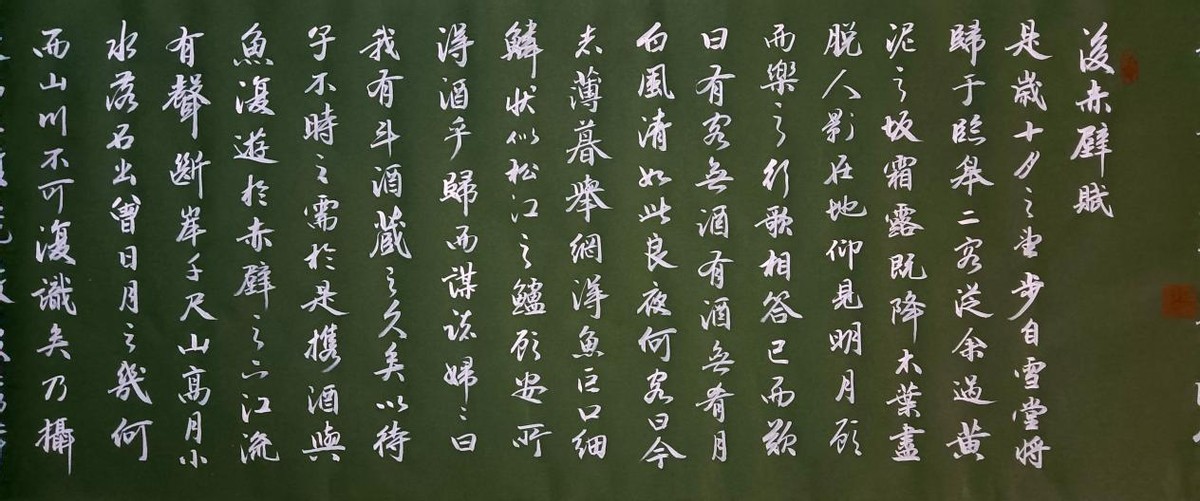 後赤壁賦
是歲十月之望步自雪堂將
歸于臨皋二客從余過黃
泥之坂霜露既降木葉盡
脫人影在地仰見明月顧
而樂之行歌相答已而歎
曰有客無酒有酒無肴月
白風清如此良夜何客曰今
者薄暮舉網得魚巨口細
鱗狀似松江之鱸顧安所
得酒乎歸而謀諸婦〻曰
我有斗酒藏之久矣以待
子不時之需於是携酒與
魚復遊於赤壁之下江流
有聲斷岸千尺山高月小
水落石出曾日月之幾何
而山川不可復識矣乃攝